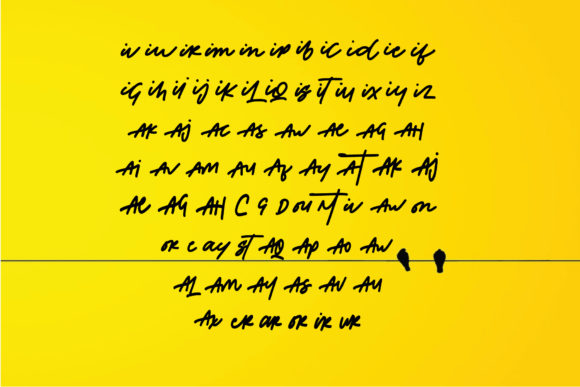 iv iw ir im in ip ib iC id ie if
iG ih il ij iK iL iQ is iT iu ix iy iz
AK Aj Ac As Aw Ae AG AH
Ai Av Am Au Af Ay AT AK Aj
Ae AG AH C G D ou NT iv Aw on
or c ay gT AQ Ap Ao Aw
AL Am Ay As Av Au
Ax er ar or ir ur